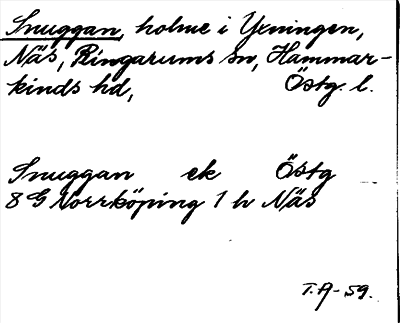 Snuggan, holme i Yxningen,
Näs, Ringarums sn, Hammar-
kinds hd, Östg. l.
Snuggan ek Östg
8 G Norrköping 1 h Näs
T.A-59.